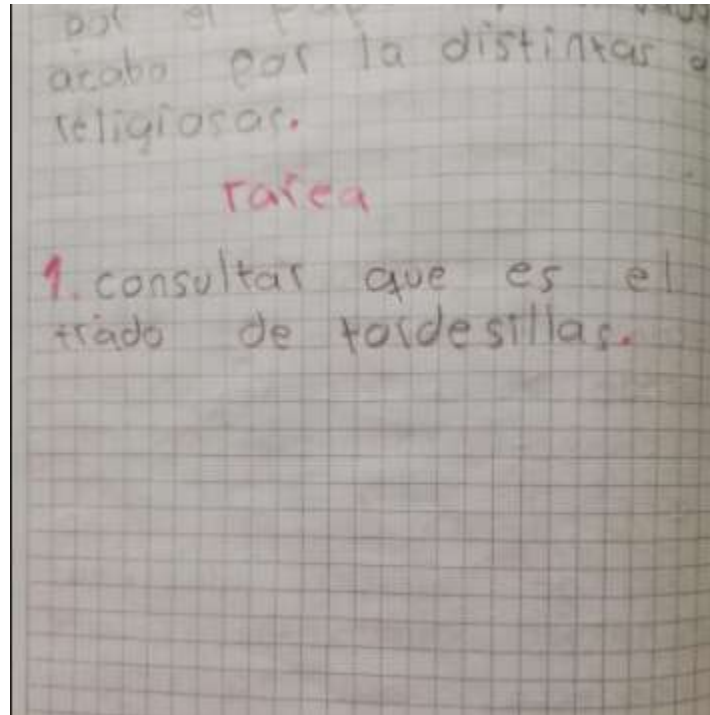 por el
acabo por la distintas
religiosas.
Tarea
1. consultar que es el
trado de tordesillas.